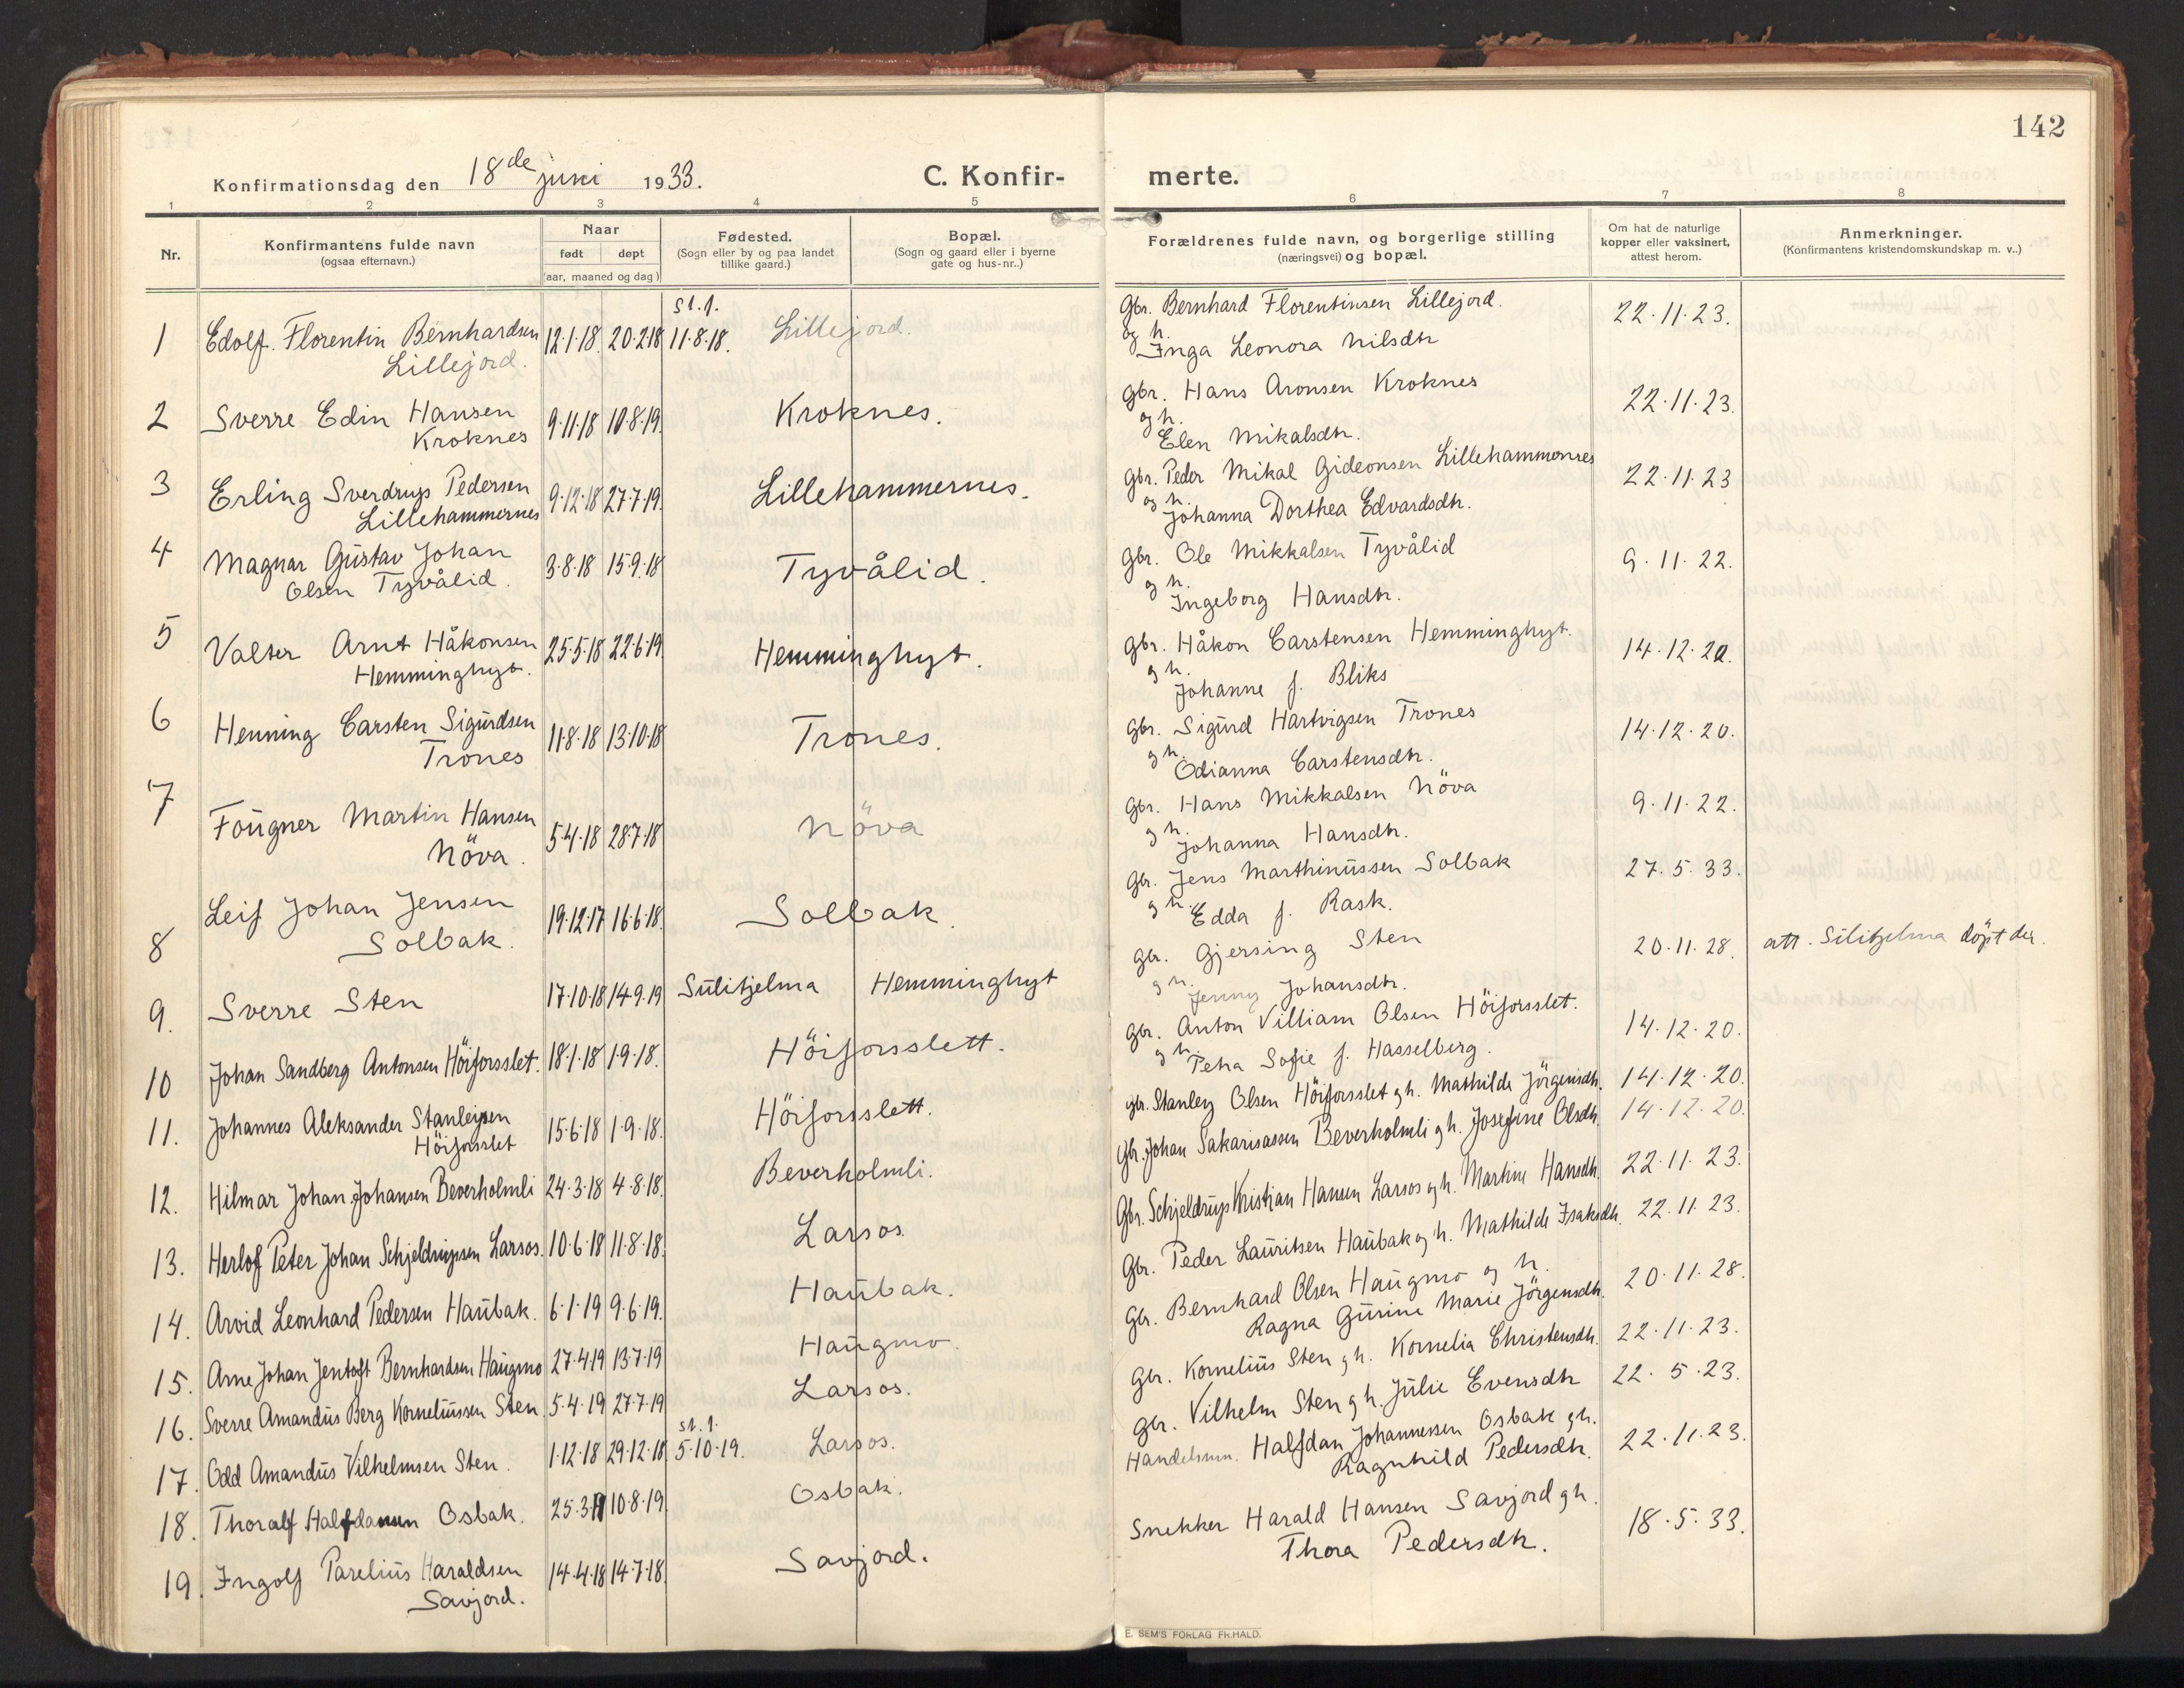 142
Konfirmationsdag den 18de juni 1933.
C. Konfir- merte.
1 2 3 4 5 6 7 8
Nr.
Konfirmantens fulde navn
(ogsaa efternavn.)
Naar
født døpt
(aar, maaned og dag)
Fødested.
(Sogn eller by og paa landet
tillike gaard.)
Bopæl.
(Sogn og gaard eller i byerne
gate og hus-nr..)
Forældrenes fulde navn, og borgerlige stilling
(næringsvei) og bopæl.
Om hat de naturlige
kopper eller vaksinert,
attest herom.
Anmerkninger.
(Konfirmantens kristendomskundskap m. v..)
1 Edolf. Florentin Bernhardsen 12.1.18. 20.2.18 st. f. 11.8.18. Lillejord.
Lillejord.
Gbr. Bernhard Florentinsen Lillejord. 22.11.23.
og h. Inga Leonora Nilsdtr
2 Sverre Edin Hansen 9.11.18 10.8.19. Kroknes.
Kroknes
Gbr. Hans Aronsen Kroknes 22.11.23.
og h. Elen Mikalsdtr.
3 Erling Sverdrup Pedersen 9.12.18 27.7.19. Lillehammernes.
Lillehammernes
Gbr. Peder Mikal Gideonsen Lillehammernes 22.11.23
og h. Johanna Dorthea Edvardsdtr.
4 Magnar Gustav Johan 3.8.18 15.9.18 Tyvålid.
Olsen Tyvålid.
Gbr. Ole Mikkalsen Tyvålid 9.11.22.
og h. Ingeborg Hansdtr.
5 Valter Arnt Håkonsen 25.5.18 22.6.19. Hemminghyt.
Hemminghyt.
Gbr. Håkon Carstensen Hemminghyt. 14.12.20.
og h. Johanne f. Bliks
6 Henning Carsten Sigurdsen 11.8.18 13.10.18 Trones.
Trones
Gbr. Sigurd Hartvigsen Trones 14.12.20.
og h. Odianna Carstensdtr.
7 Fougner Martin Hansen 5.4.18 28.7.18 Növa
Növa.
Gbr. Hans Mikkalsen Növa 9.11.22.
og h. Johanna Hansdtr.
8 Leif Johan Jensen 19.12.17 16.6.18. Solbak.
Solbak.
Gbr. Jens Marthinussen Solbak 27.5.33.
og h. Edda f. Rask.
9. Sverre Sten 17.10.18 14.9.19 Sulitjelma Hemminghyt
Gbr. Gjersing Sten 20.11.28. att. Sulitjelma döpt der.
og h. Jenny Johansdtr.
10 Johan Sandberg Antonsen Höiforsslet. 18.1.18 1.9.18. Höiforsslett.
Gbr. Anton Villiam Olsen Höiforsslet. 14.12.20.
og h. Petra Sofie f. Hasselberg.
11. Johannes Aleksander Stanleysen 15.6.18 1.9.18. Höiforsslett.
Höiforsslet
Gbr. Stanley Olsen Höiforsslet og h. Mathilde Jörgensdtr. 14.12.20.
12. Hilmar Johan Johansen Beverholmli 24.3.18 4.8.18. Beverholmli.
Gbr. Johan Sakariassen Beverholmli og h. Josefine Olsdtr. 14.12.20.
13. Herlof Peter Johan Schjeldrupsen Larsos. 10.6.18 11.8.18. Larsos.
Gbr. Schjeldrup Kristian Hansen Larsos og h. Martine Hansdtr. 22.11.23.
14. Arvid Leonhard Pedersen Haubak. 6.1.19 9.6.19. Haubak.
Gbr. Peder Lauritsen Haubak og h. Mathilde Isaksdtr. 22.11.23.
15. Arne Johan Jentoft Bernhardsen Haugmo 27.4.19 13.7.19 Haugmo.
Gbr. Bernhard Olsen Haugmo og h. 20.11.28.
Ragna Gurine Marie Jörgensdtr.
16. Sverre Amandus Berg Korneliussen Sten. 5.4.19 27.7.19 Larsos.
Gbr. Kornelius Sten og h. Kornelia Christensdtr. 22.11.23.
17. Odd Amandus Vilhelmsen Sten. 1.12.18 29.12.18 st. f. 5.10.19. Larsos.
Gbr. Vilhelm Sten og h. Julie Evensdtr 22.5.23.
18. Thoralf Halfdansen Osbak. 25.3.19 10.8.19. Osbak.
Handelsmn. Halfdan Johannessen Osbak og h. 22.11.23.
Ragnhild Pedersdtr.
19. Ingolf Parelius Haraldsen 14.4.18 14.7.18. Savjord.
Savjord.
Snekker Harald Hansen Savjord og h. 18.5.33.
Thora Pedersdtr.
E. SEM'S FORLAG FR.HALD.